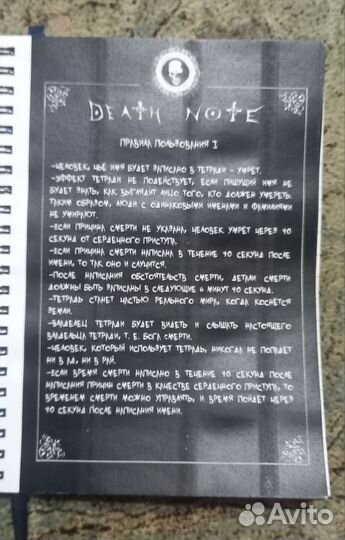 DEATH NOTE
ПРАВИЛА ПОЛЬЗОВАНИЯ I
-ЧЕЛОВЕК, ЧЬЕ ИМЯ БУДЕТ ЗАПИСАНО В ТЕТРАДИ - УМРЕТ.
-ЭФФЕКТ ТЕТРАДИ НЕ ПОДЕЙСТВУЕТ, ЕСЛИ ПИШУЩИЙ ИМЯ НЕ
БУДЕТ ЗНАТЬ, КАК ВЫГЛЯДИТ ЛИЦО ТОГО, КТО ДОЛЖЕН УМЕРЕТЬ.
ТАКИМ ОБРАЗОМ, ЛЮДИ С ОДИНАКОВЫМИ ИМЕНАМИ И ФАМИЛИЯМИ
НЕ УМИРАЮТ.
-ЕСЛИ ПРИЧИНА СМЕРТИ НЕ УКАЗАНА, ЧЕЛОВЕК УМРЕТ ЧЕРЕЗ 40
СЕКУНД ОТ СЕРДЕЧНОГО ПРИСТУПА.
-ЕСЛИ ПРИЧИНА СМЕРТИ НАПИСАНА В ТЕЧЕНИЕ 40 СЕКУНД ПОСЛЕ
ИМЕНИ, ТО ТАК ОНО И СЛУЧИТСЯ.
-ПОСЛЕ НАПИСАНИЯ ОБСТОЯТЕЛЬСТВ СМЕРТИ, ДЕТАЛИ СМЕРТИ
ДОЛЖНЫ БЫТЬ ЗАПИСАНЫ В СЛЕДУЮЩИЕ 6 МИНУТ 40 СЕКУНД.
-ТЕТРАДЬ СТАНЕТ ЧАСТЬЮ РЕАЛЬНОГО МИРА, КОГДА КОСНЕТСЯ
ЗЕМЛИ.
-ВЛАДЕЛЕЦ ТЕТРАДИ БУДЕТ ВИДЕТЬ И СЛЫШАТЬ НАСТОЯЩЕГО
ВЛАДЕЛЬЦА ТЕТРАДИ, Т. Е. БОГА СМЕРТИ.
-ЧЕЛОВЕК, КОТОРЫЙ ИСПОЛЬЗУЕТ ТЕТРАДЬ, НИКОГДА НЕ ПОПАДЕТ
НИ В АД, НИ В РАЙ.
-ЕСЛИ ВРЕМЯ СМЕРТИ НАПИСАНО В ТЕЧЕНИЕ 40 СЕКУНД ПОСЛЕ
НАПИСАНИЯ ПРИЧИН СМЕРТИ В КАЧЕСТВЕ СЕРДЕЧНОГО ПРИСТУПА, ТО
ВРЕМЕНЕМ СМЕРТИ МОЖНО УПРАВЛЯТЬ, И ВРЕМЯ ПОЙДЕТ ЧЕРЕЗ
40 СЕКУНД ПОСЛЕ НАПИСАНИЯ ИМЕНИ.
Avito